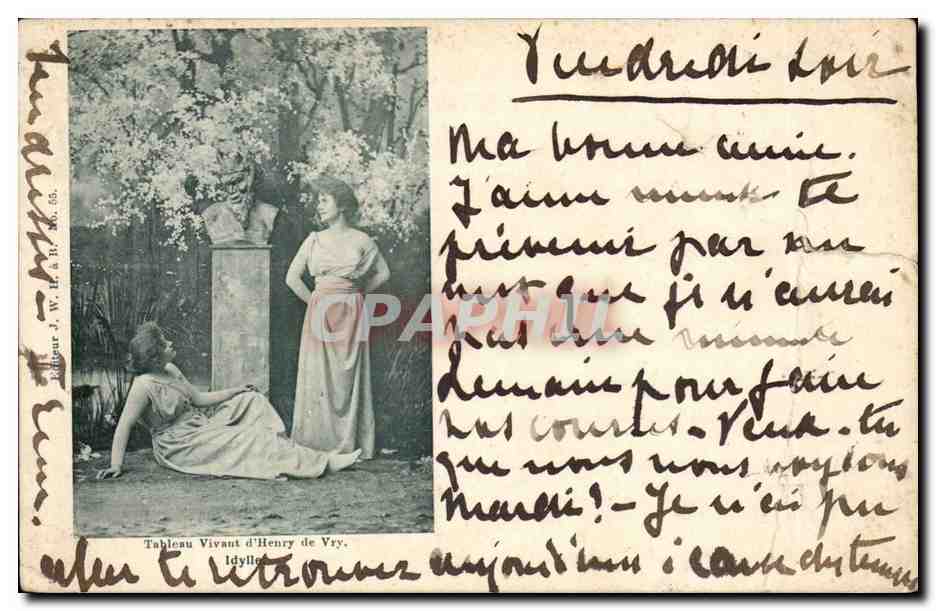 Vendredi soir
Ma bonne amie.
J'aime mieux te
prévenir par un
mot que je n'aurai
pas une minute
demain pour faire
nos courses - Veux-tu
que nous nous voyions
Mardi? - Je n'ai pu
aller te retrouver aujourd'hui à cause du temps
Tableau Vivant d'Henry de Vry.
Idylle
Editeur J. W. H. à B. No. 55.
CPAPHIL